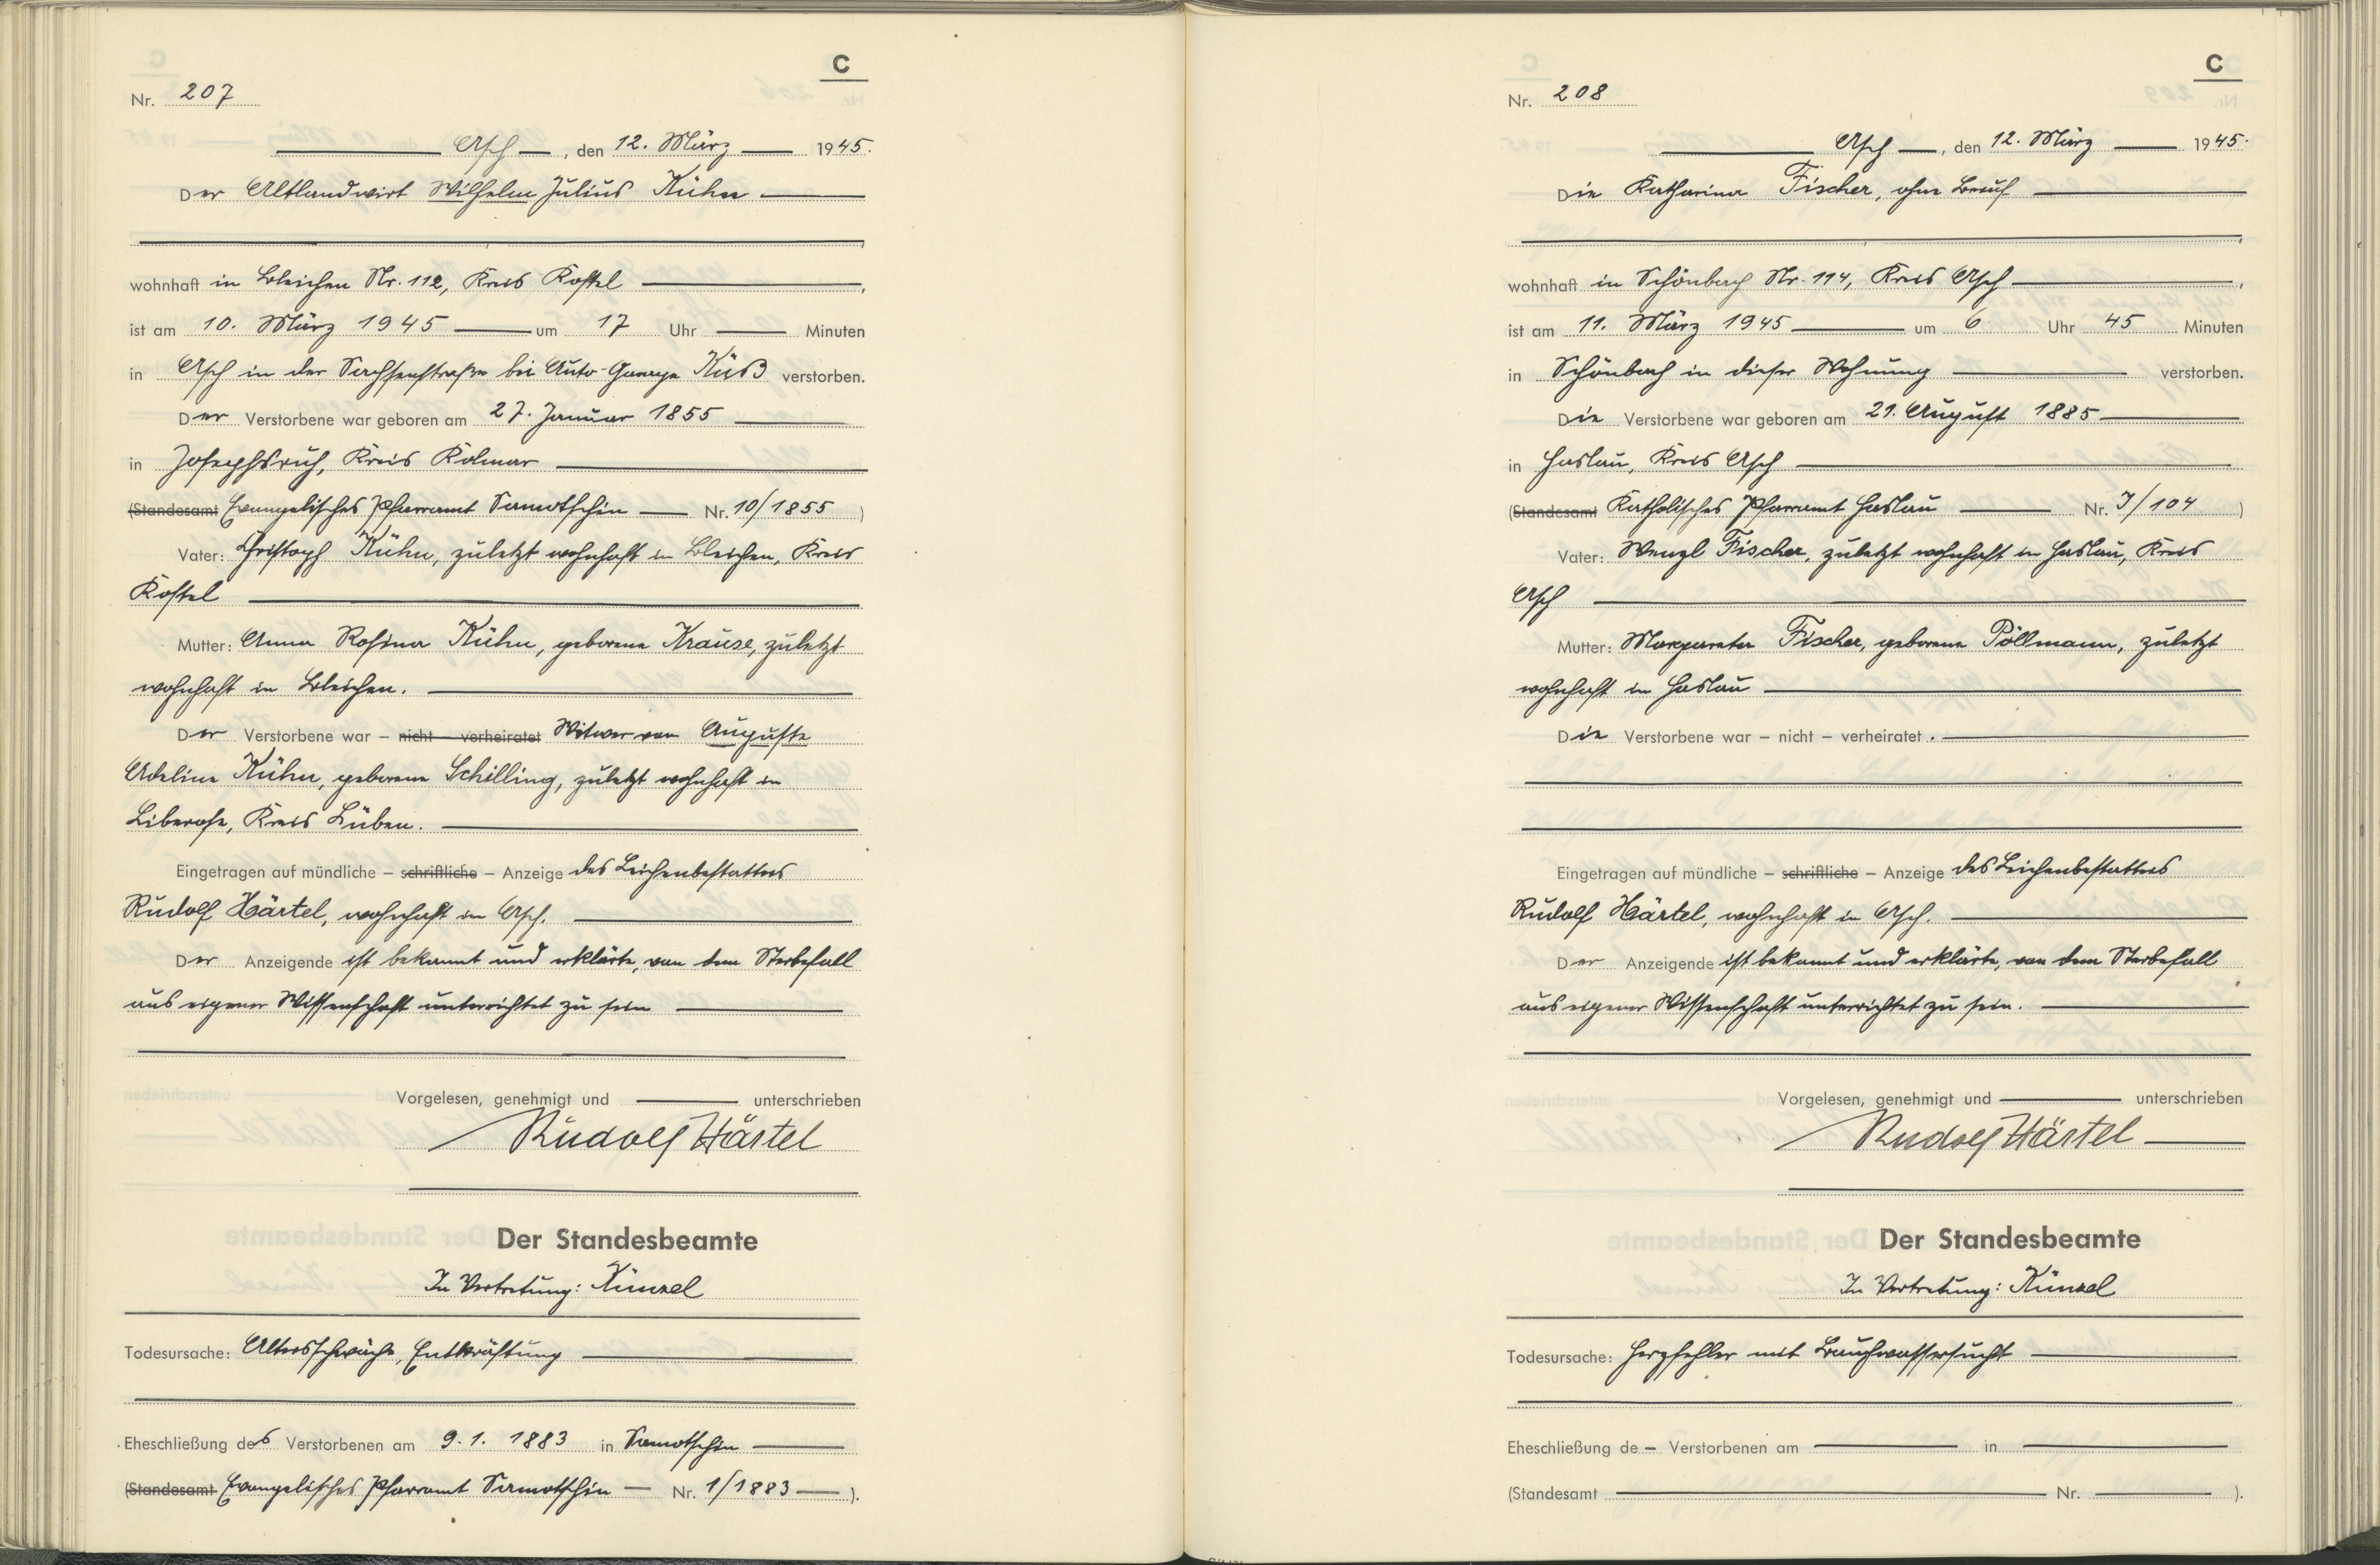 C
Nr. 207
Asch, den 12. März 1945.
Der Altlandwirt Wilhelm Julius Kühn
wohnhaft in Bleichen Nr. 112, Kreis Kostel,
ist am 10. März 1945 um 17 Uhr Minuten
in Asch in der Sachsenstraße bei Auto-Garage Küß verstorben.
Der Verstorbene war geboren am 27. Januar 1855
in Josephsruh, Kreis Kolmar
(Standesamt Evangelisches Pfarramt Samotschin Nr. 10/1855)
Vater: Christoph Kühn, zuletzt wohnhaft in Bleichen, Kreis
Kostel
Mutter: Anna Rosina Kühn, geborene Krause, zuletzt
wohnhaft in Bleichen.
Der Verstorbene war – nicht – verheiratet Witwer von Auguste
Adeline Kühn, geborene Schilling, zuletzt wohnhaft in
Liberose, Kreis Lüben.
Eingetragen auf mündliche – schriftliche – Anzeige des Leichenbestatters
Rudolf Härtel, wohnhaft in Asch.
Der Anzeigende ist bekannt und erklärte, von dem Sterbefall
aus eigener Wissenschaft unterrichtet zu sein
Vorgelesen, genehmigt und unterschrieben
Rudolf Härtel
Der Standesbeamte
In Vertretung: Künzel
Todesursache: Altersschwäche, Entkräftung
Eheschließung des Verstorbenen am 9.1. 1883 in Samotschin
(Standesamt Evangelisches Pfarramt Samotschin Nr. 1/1883).
C
Nr. 208
Asch, den 12. März 1945.
Die Katharina Fischer, ohne Beruf
wohnhaft in Schönbach Nr. 114, Kreis Asch,
ist am 11. März 1945 um 6 Uhr 45 Minuten
in Schönbach in dieser Wohnung verstorben.
Die Verstorbene war geboren am 21. August 1885
in Haslau, Kreis Asch
(Standesamt Katholisches Pfarramt Haslau Nr. J/104)
Vater: Wenzl Fischer, zuletzt wohnhaft in Haslau, Kreis
Asch
Mutter: Margareta Fischer, geborene Pöllmann, zuletzt
wohnhaft in Haslau
Die Verstorbene war – nicht – verheiratet.
Eingetragen auf mündliche – schriftliche – Anzeige des Leichenbestatters
Rudolf Härtel, wohnhaft in Asch.
Der Anzeigende ist bekannt und erklärte, von dem Sterbefall
aus eigener Wissenschaft unterrichtet zu sein.
Vorgelesen, genehmigt und unterschrieben
Rudolf Härtel
Der Standesbeamte
In Vertretung: Künzel
Todesursache: Herzfehler mit Bauchwassersucht
Eheschließung de – Verstorbenen am in
(Standesamt Nr. ).